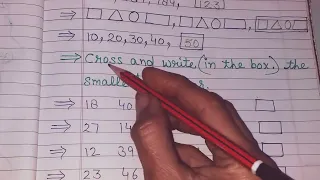 184, 123
⇒ □△○□, □△○□, □△○□
⇒ 10, 20, 30, 40, 50
⇒ Cross and write (in the box) the
small
⇒ 18 40
⇒ 27 14
⇒ 12 39
⇒ 23 46